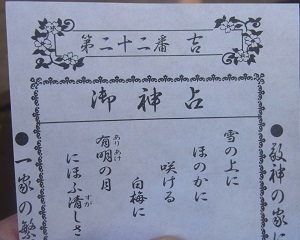 第二十二番 吉
御神占
●敬神の家に
雪の上に
ほのかに
咲ける
白梅に
有明の月
ありあけ
にほふ清しさ
すが
●一家の繁